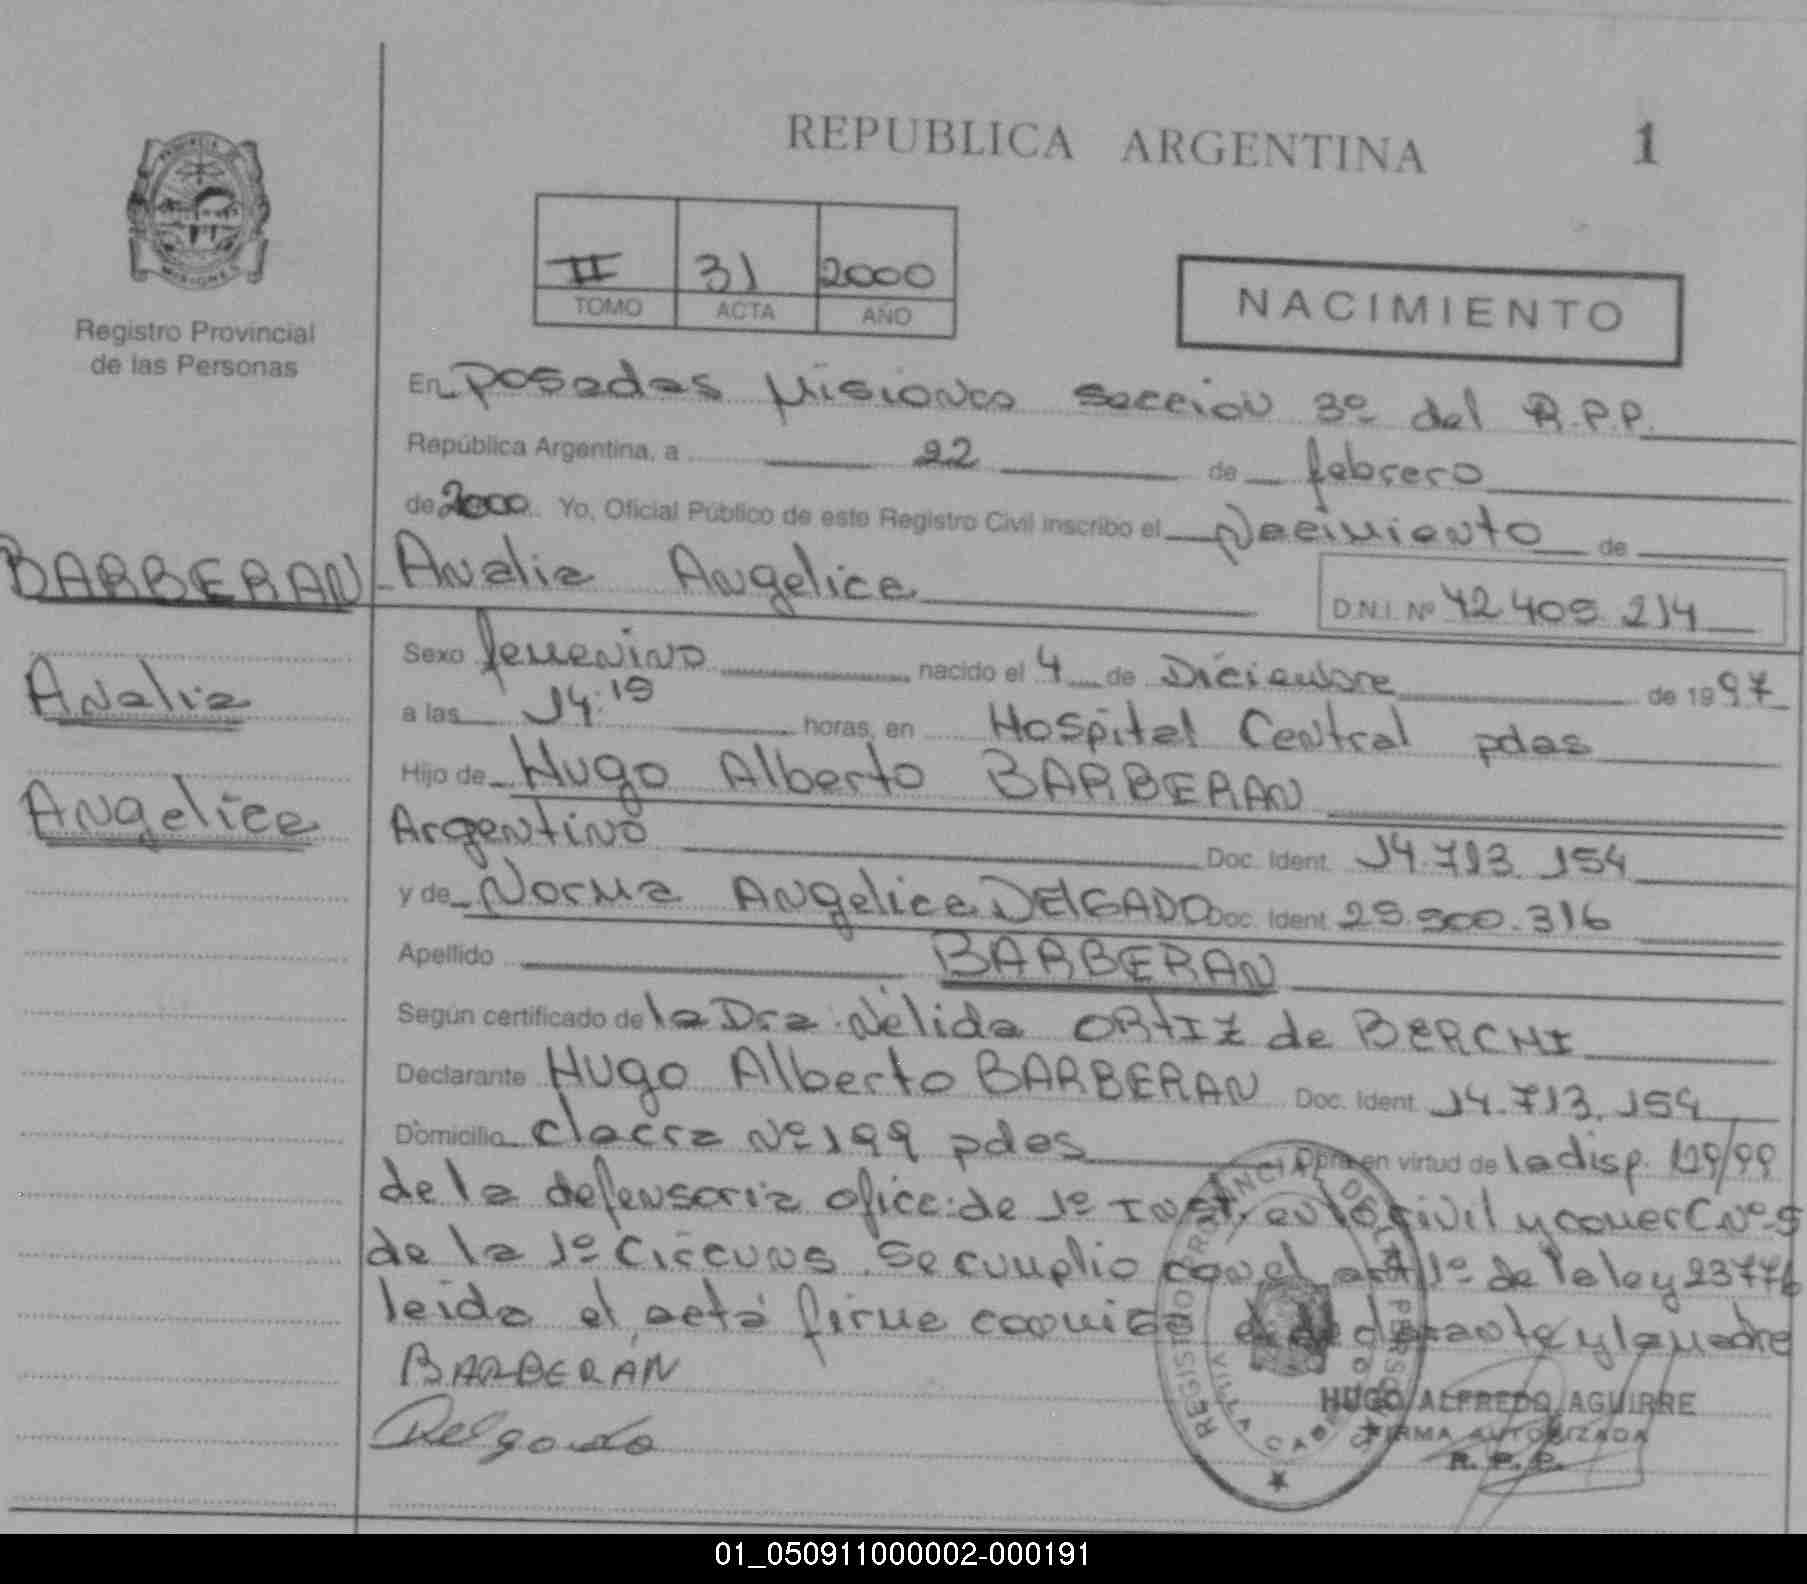 REPUBLICA ARGENTINA
1
PROVINCIA DE
MISIONES
Registro Provincial
de las Personas
II 31 2000
TOMO ACTA AÑO
NACIMIENTO
En Posadas Misiones seccion 3º del R.P.P.
República Argentina, a 22 de febrero
de 2000 Yo, Oficial Público de este Registro Civil inscribo el Nacimiento de
BARBERAN Analia Angelica
D.N.I. Nº 42 405 214
Analia
Angelica
Sexo femenino nacido el 4 de Diciembre de 1997
a las 14:15 horas, en Hospital Central pdas
Hijo de Hugo Alberto BARBERAN
Argentino Doc. Ident. 14.713.154
y de Norma Angelica DELGADO Doc. Ident. 25.500.316
Apellido BARBERAN
Según certificado de la Dra. Nélida ORTIZ de BERCHI
Declarante Hugo Alberto BARBERAN Doc. Ident. 14.713.154
Domicilio chacra Nº 199 pdas Obra en virtud de la disp. 129/99
de la defensoria ofic. de 1º Inst. en lo civil y comerC Nº 5
de la 1º Circuns. Se cumplio con el art 1º de la ley 23776
leida el acta firma conmigo el declarante y la madre
BARBERÁN
Delgado
REGISTRO PROVINCIAL DE LAS PERSONAS
HUGO ALFREDO AGUIRRE
FIRMA AUTORIZADA
R. P. P.
01_050911000002-000191